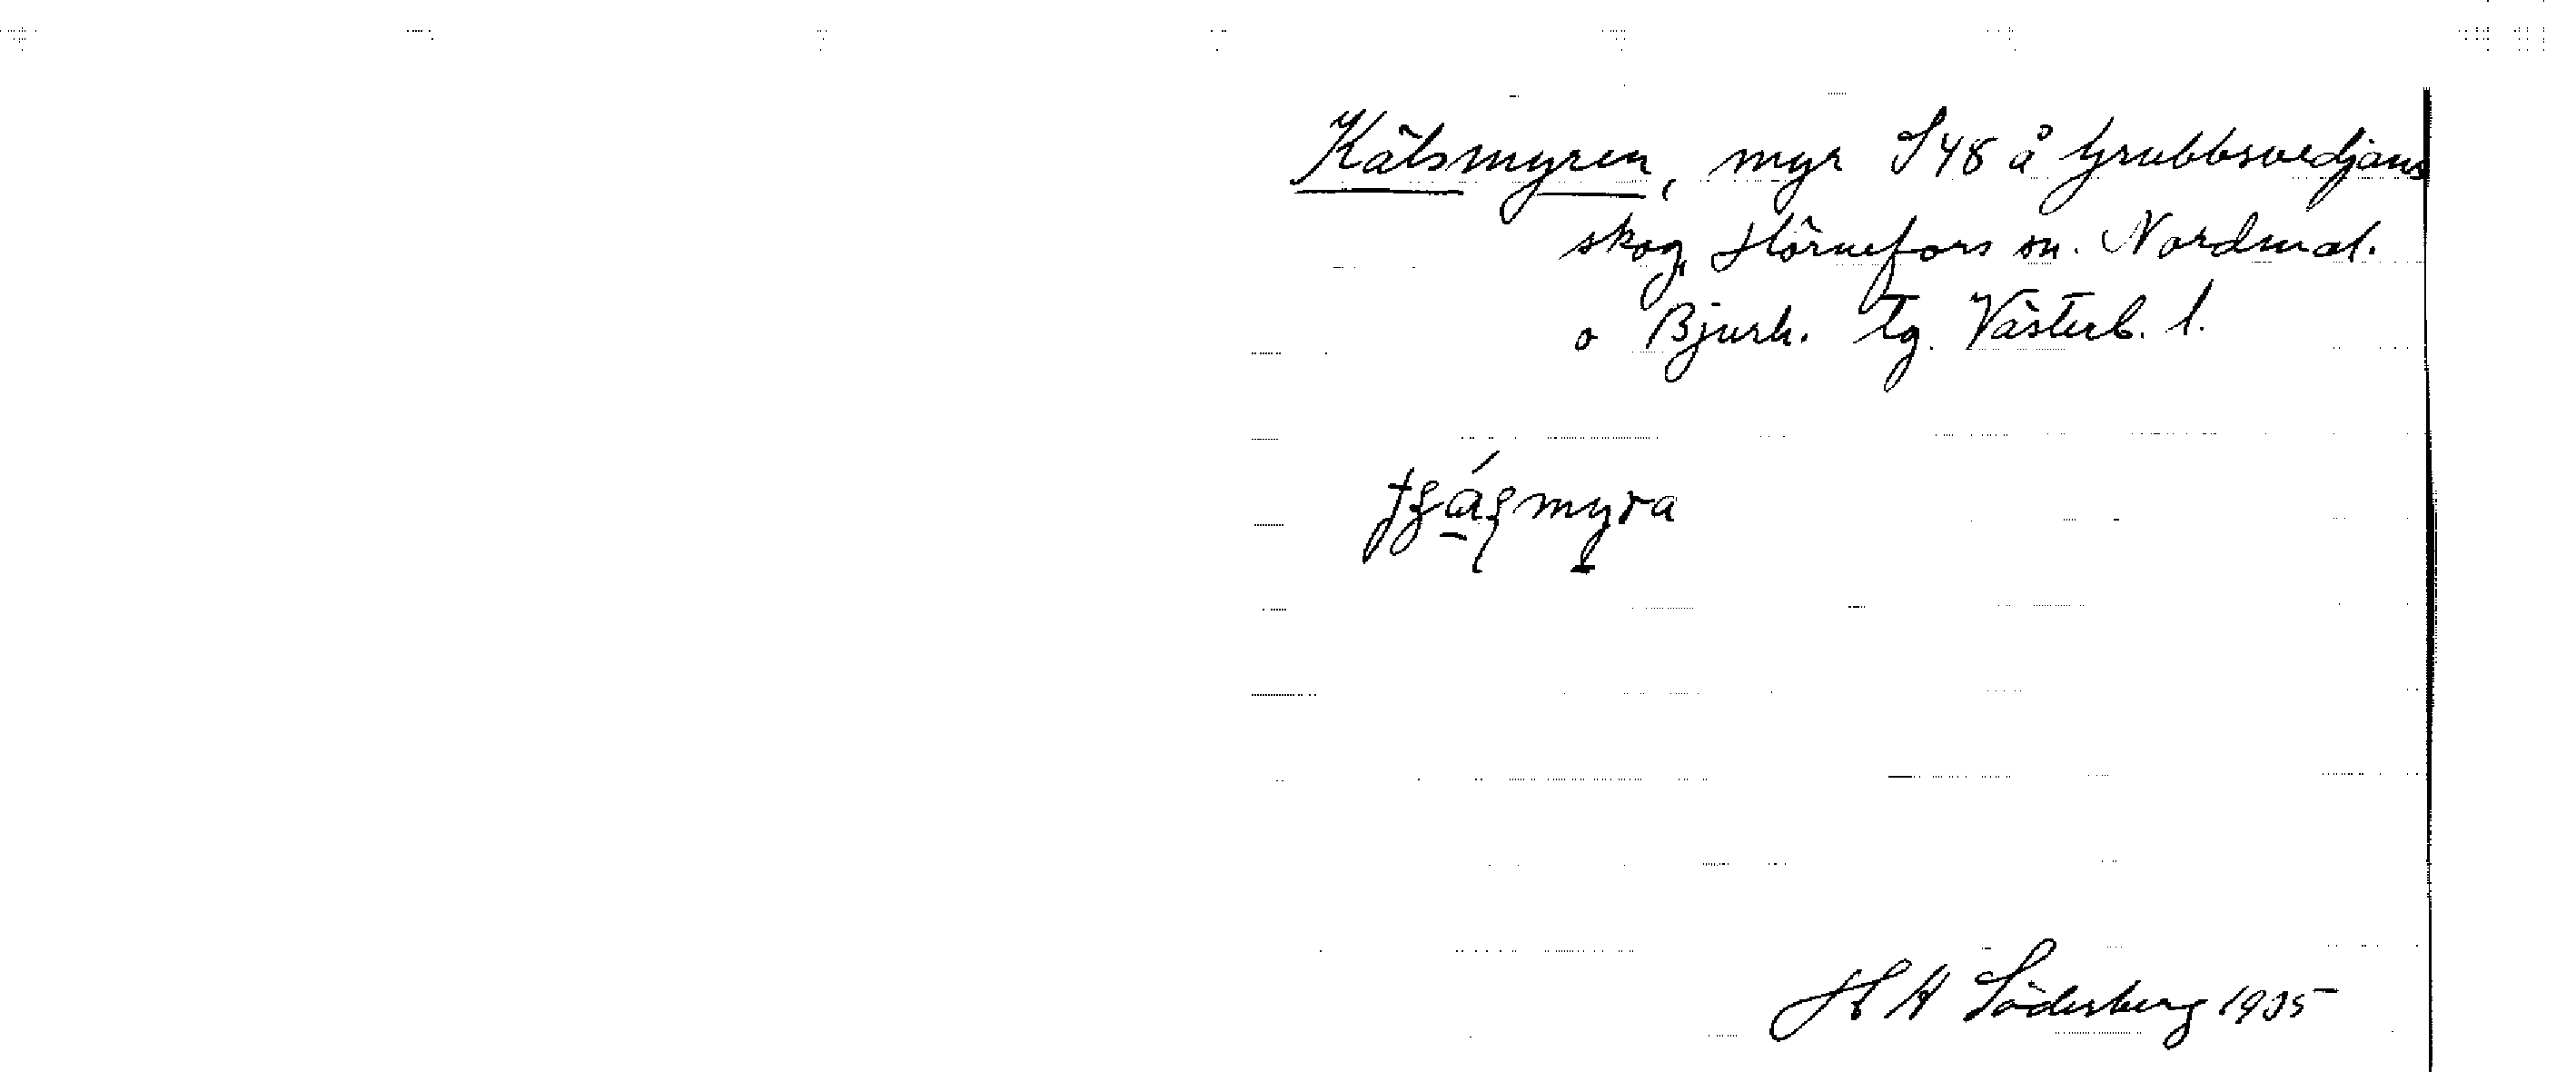 Kälsmyren, myr S48 å Grubbsvedjans
skog, Hörnefors sn. Nordmal.
o Bjurh. tg. Västerb. l.
H A Söderberg 1935